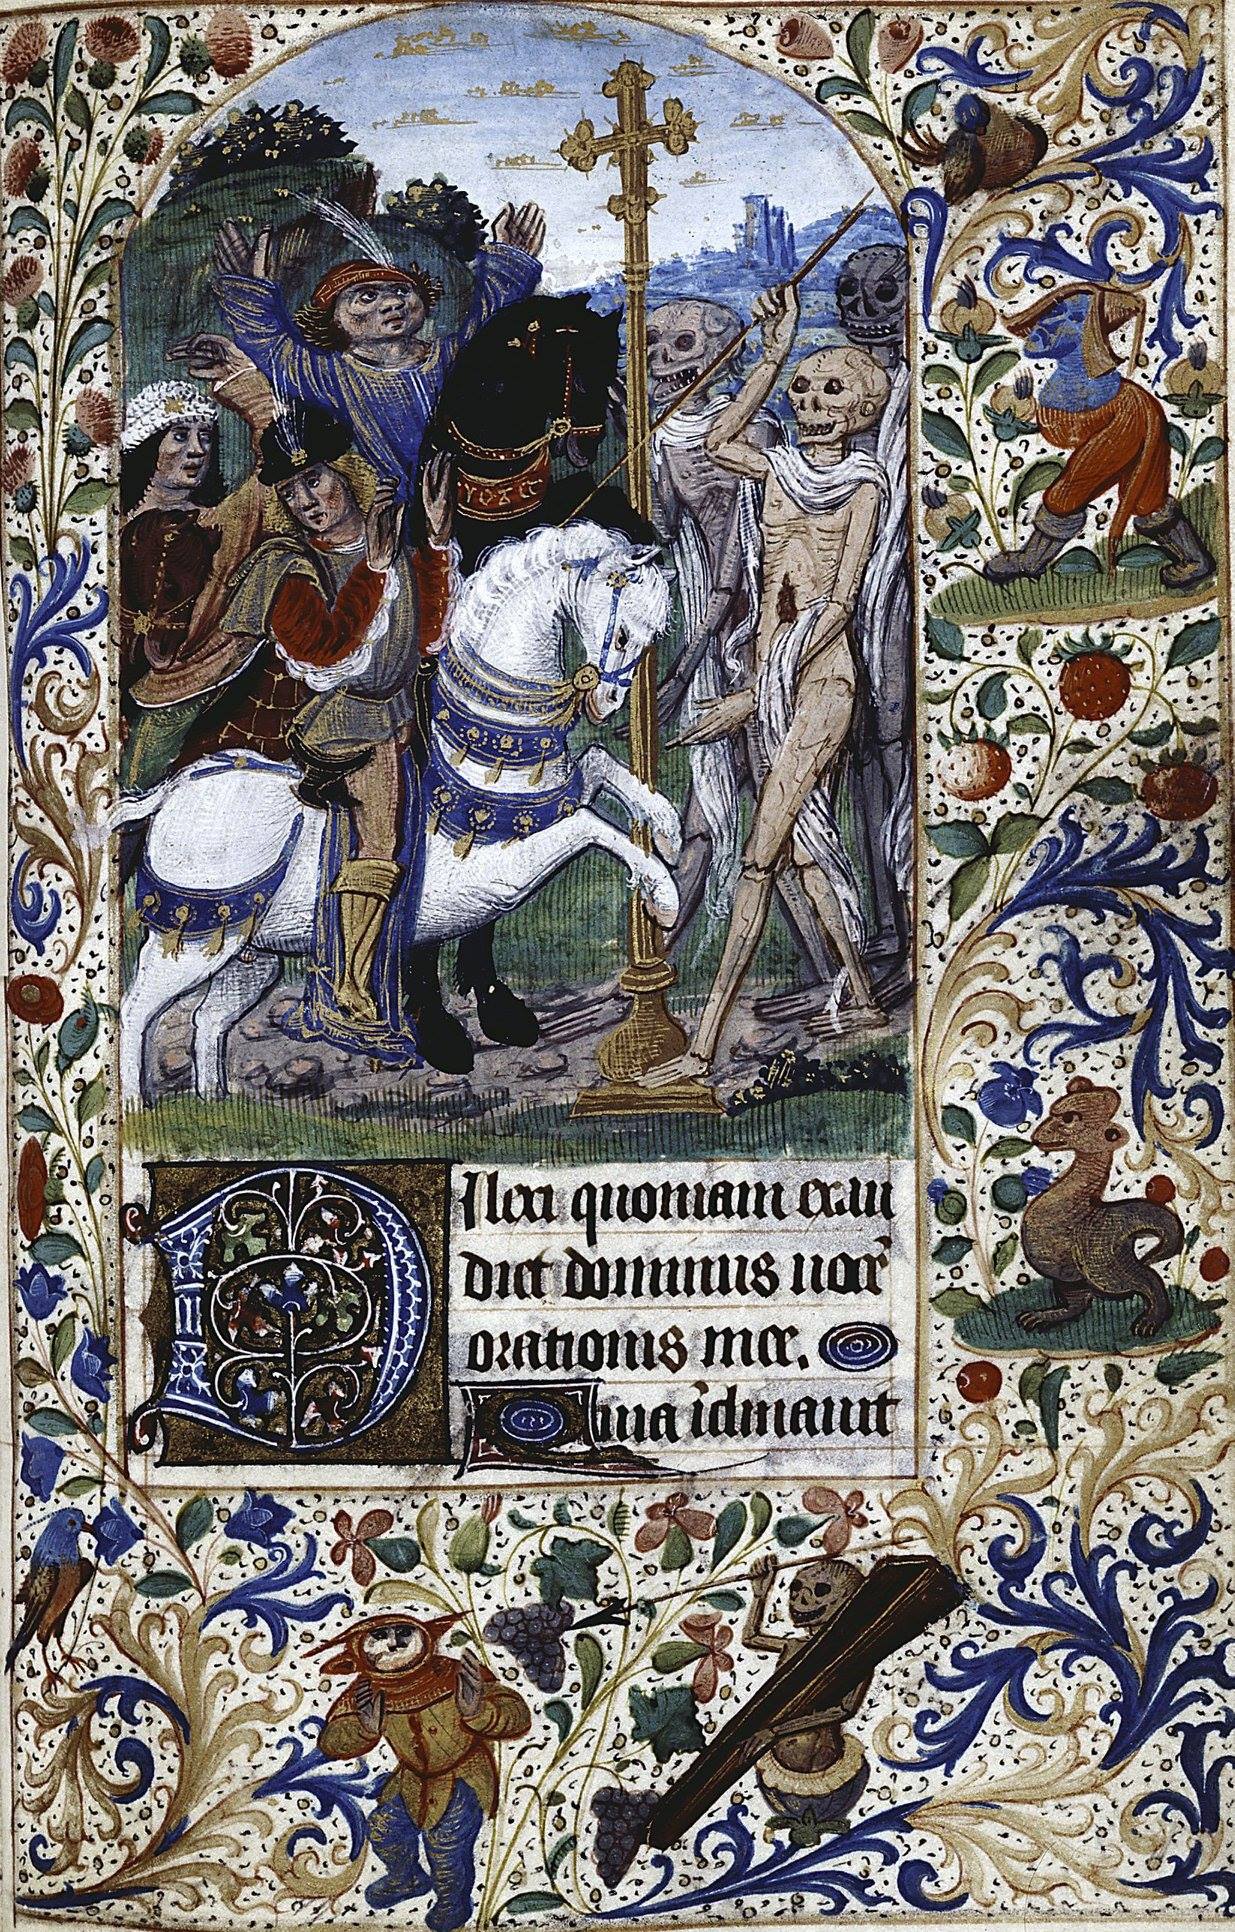 Dilexi quoniam exau
diet dominus vocē
orationis mee.
Quia īclinauit